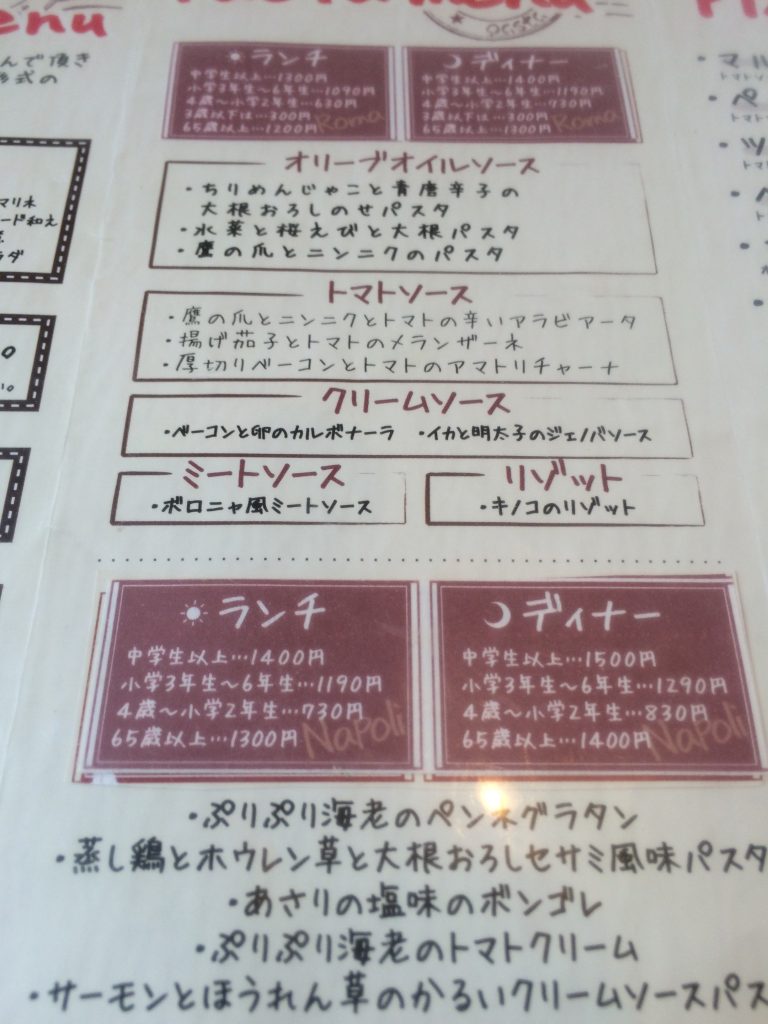 enu
Pasta menu
んで頂き
形式の
マリネ
ード和え
ラダ
☀ランチ
中学生以上…1300円
小学3年生〜6年生…1090円
4歳〜小学2年生…630円
3歳以下は…300円
65歳以上…1200円
Roma
☾ディナー
中学生以上…1400円
小学3年生〜6年生…1190円
4歳〜小学2年生…730円
3歳以下は…300円
65歳以上…1300円
Roma
オリーブオイルソース
・ちりめんじゃこと青唐辛子の
大根おろしのせパスタ
・水菜と桜えびと大根パスタ
・鷹の爪とニンニクのパスタ
トマトソース
・鷹の爪とニンニクとトマトの辛いアラビアータ
・揚げ茄子とトマトのメランザーネ
・厚切りベーコンとトマトのアマトリチャーナ
クリームソース
・ベーコンと卵のカルボナーラ ・イカと明太子のジェノバソース
ミートソース
・ボロニャ風ミートソース
リゾット
・キノコのリゾット
☀ランチ
中学生以上…1400円
小学3年生〜6年生…1190円
4歳〜小学2年生…730円
65歳以上…1300円
Napoli
☾ディナー
中学生以上…1500円
小学3年生〜6年生…1290円
4歳〜小学2年生…830円
65歳以上…1400円
Napoli
・ぷりぷり海老のペンネグラタン
・蒸し鶏とホウレン草と大根おろしセサミ風味パスタ
・あさりの塩味のボンゴレ
・ぷりぷり海老のトマトクリーム
・サーモンとほうれん草のかるいクリームソースパス
・マール
トマトソ
・ペ
トマト
・ツ
トマ